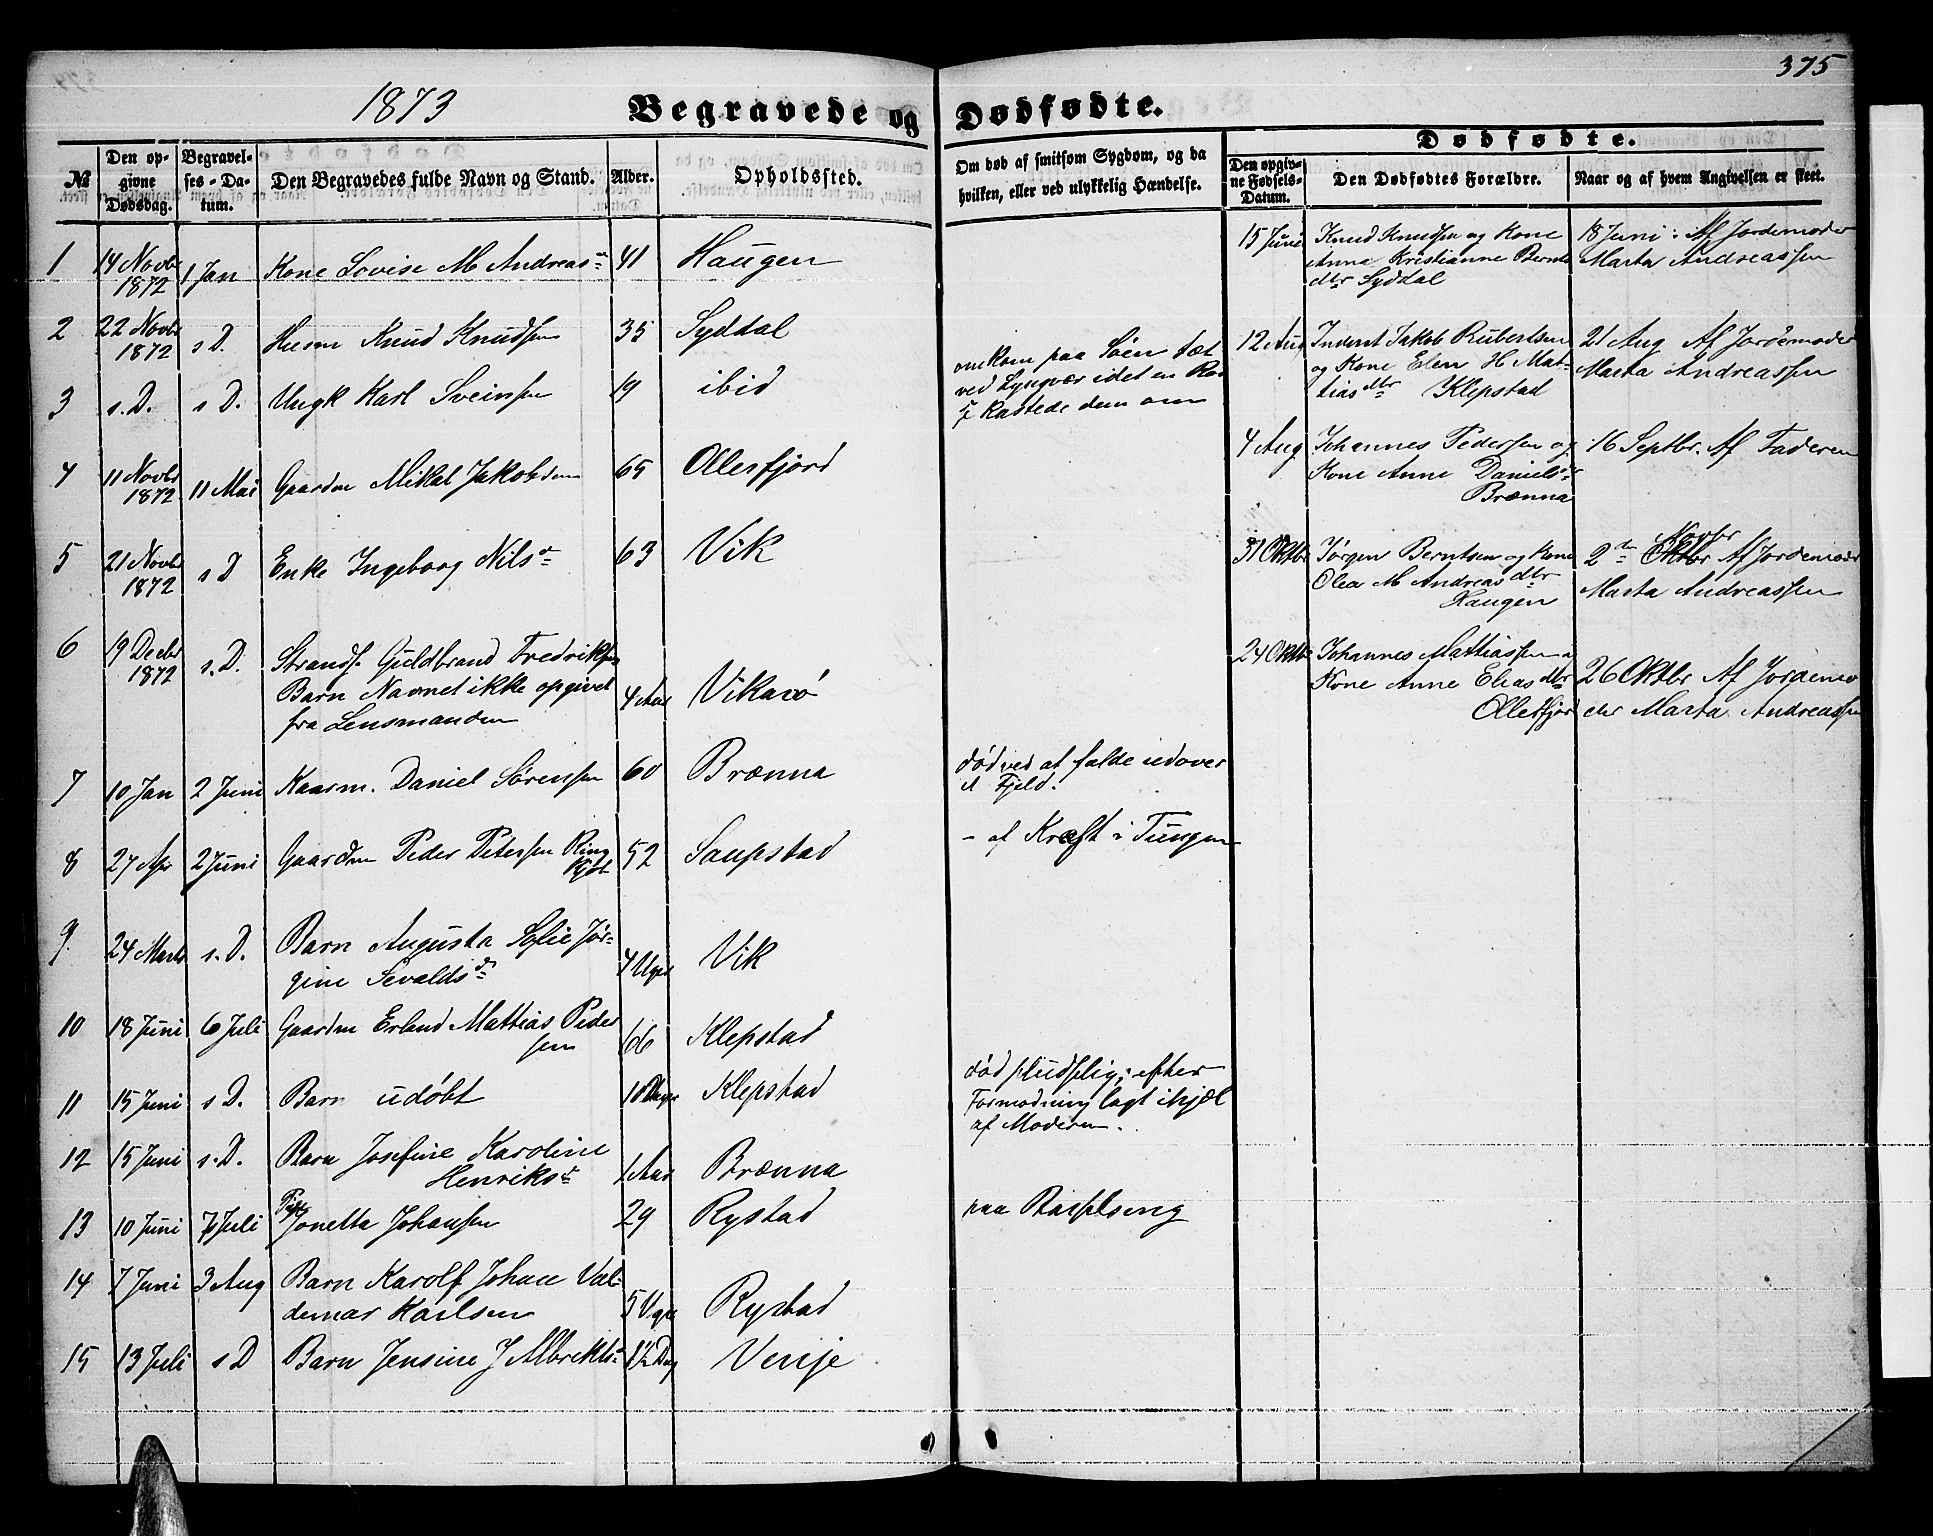 375
1873
Begravede og Dødfødte.
Dødfødte.
№
Den op-
givne
Dødsdag.
Begravel-
ses-Da-
tum.
Den Begravedes fulde Navn og Stand.
Alder.
Opholdssted.
Om død af smitsom Sygdom, og da
hvilken, eller ved ulykkelig Hændelse.
Den opgiv-
ne Fødsels-
Datum.
Den Dødfødtes Forældre.
Naar og af hvem Angivelsen er skeet.
1 14 Novbr 1 Jan Kone Lovise M Andreas 41 Haugen
1872
2 22 Novbr s D. Husm Knud Knudsen 35 Sydtal
1872
3 s. D. s D. Ungk Karl Sveinsen 19 ibid
omkom paa Søen tæt
ved Lyngvær idet en Ros
kastede dem om
4 11 Novbr 11 Mai Gaardm Mikal Jakobsen 65 Ollersfjord
1872
5 21 Novbr s D Enke Ingeborg Nils 63 Vik
1872
6 19 Decbr s. D. Strands. Guldbrand Fredriksens
1872
Barn Navnet ikke opgivet 4 Aar Vikarø
fra Lensmanden
7 10 Jan 2 Juni Kaarm. Daniel Sørensen 60 Brænna
død ved at falde udover
et Fjeld.
8 27 Ap 2 Juni Gaardm Peder Petersen Ring 52 Saupstad
- af Kræft i Tungen
9 24 Marts s. D. Barn Augusta Sofie Jør-
gine Sevalds 4 Uger Vik
10 18 Juni 6 Juli Gaardm Erland Mattias Peder
sen 66 Klepstad
11 15 Juni s D. Barn udøbt 10 Dage Klepstad
død pludselig; efter
Formodning lagt ihjæl
af Moderen.
12 15 Juni s. D. Barn Josefine Karoline
Henriks 1 Aar Brænna
13 10 Juni 7 Juli Pige Jonetta Johansen 29 Rystad paa Barselseng
14 7 Juni 3 Aug Barn Karolf Johan Val-
demar Karlsen 5 Uger Rystad
15 13 Juli s D Barn Jensine J Albrikts Dag Venje
15 Juni Knud Knudsen og Kone
Anne Kristianne Bernt
dtr Sydtal
18 Juni: Af Jordemoder
Marta Andreassen
12 Aug Inderst Jakob Rubertsen
og Kone Elen H Mat-
tias dtr Klepstad
21 Aug Af Jordemoder
Marta Andreassen
4 Aug Johannes Pedersen og
Kone Anne Daniels
Brænna
16 Septbr. Af Faderen
31 Oktbr Jørgen Berntsen og Kone
Olea M Andreas dtr
Haugen
Novbr
2 Oktbr Af Jordemoder
Marta Andreassen
24 Oktbr Johannes Mattiassen
Kone Anne Elias dtr
Ollersfjord
26 Oktbr Af Jordemo
der Marta Andreassen